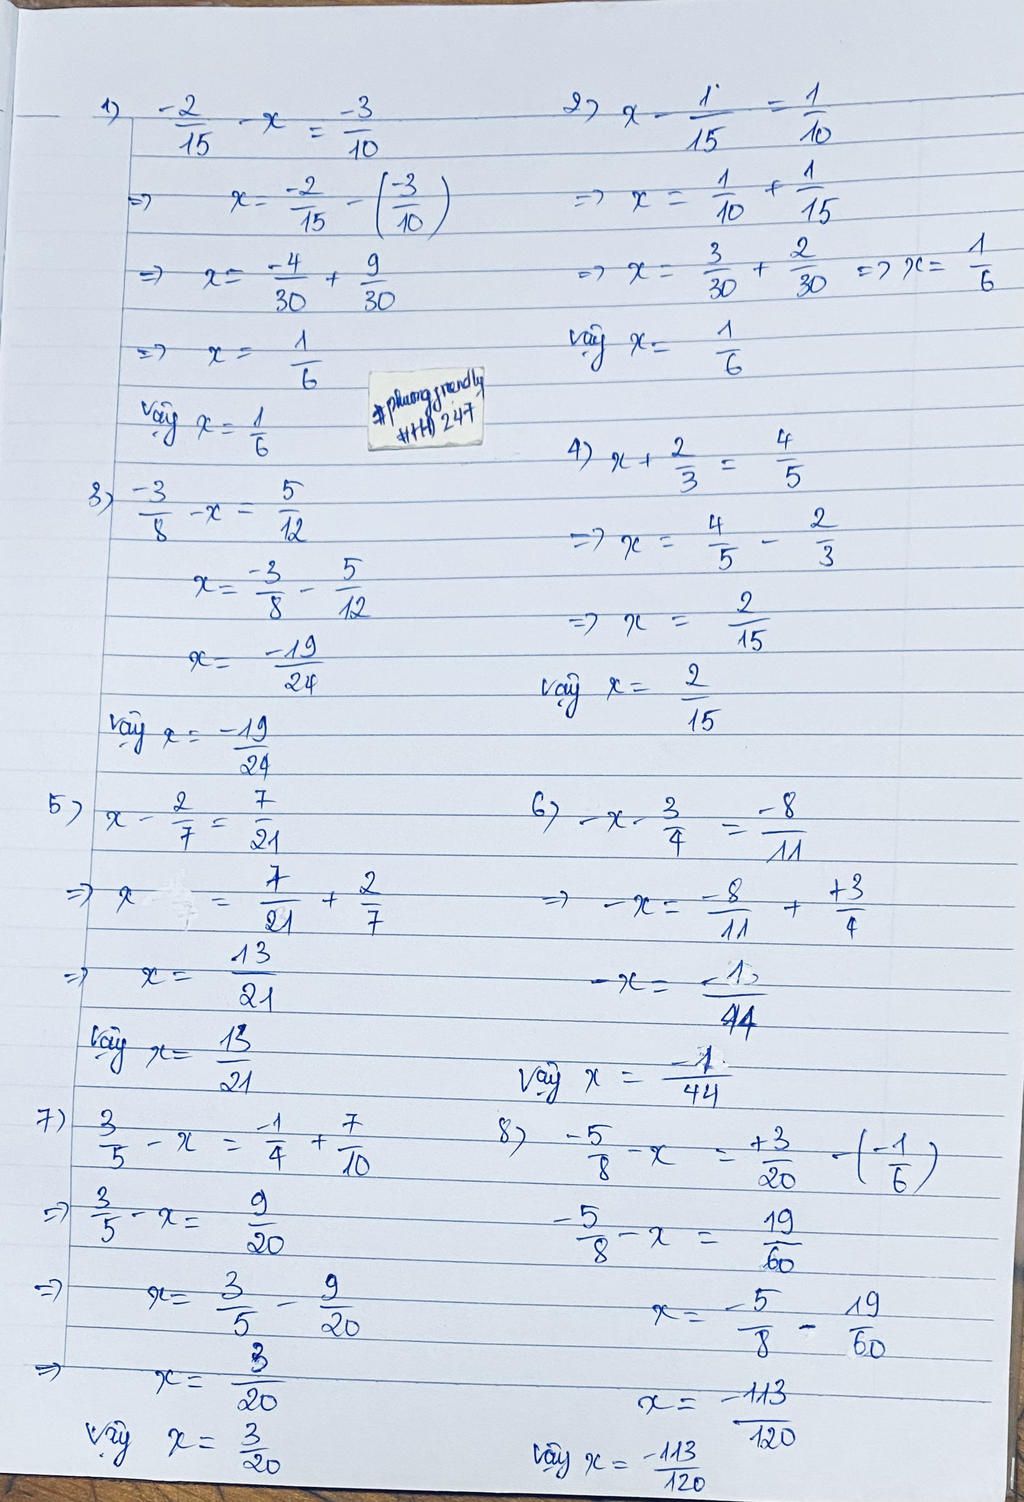 1) -2/15 - x = -3/10
=> x = -2/15 - (-3/10)
=> x = -4/30 + 9/30
=> x = 1/6
Vậy x = 1/6
2) x - 1/15 = 1/10
=> x = 1/10 + 1/15
=> x = 3/30 + 2/30 => x = 1/6
Vậy x = 1/6
#phuongfriendly
#HĐ 247
3) -3/8 - x = 5/12
x = -3/8 - 5/12
x = -19/24
Vậy x = -19/24
4) x + 2/3 = 4/5
=> x = 4/5 - 2/3
=> x = 2/15
Vậy x = 2/15
5) x - 2/7 = 7/21
=> x = 7/21 + 2/7
=> x = 13/21
Vậy x = 13/21
6) -x - 3/4 = -8/11
=> -x = -8/11 + +3/4
-x = -1/44
Vậy x = -1/44
7) 3/5 - x = -1/4 + 7/10
=> 3/5 - x = 9/20
=> x = 3/5 - 9/20
=> x = 3/20
Vậy x = 3/20
8) -5/8 - x = +3/20 - (-1/6)
-5/8 - x = 19/60
x = -5/8 - 19/60
x = -113/120
Vậy x = -113/120